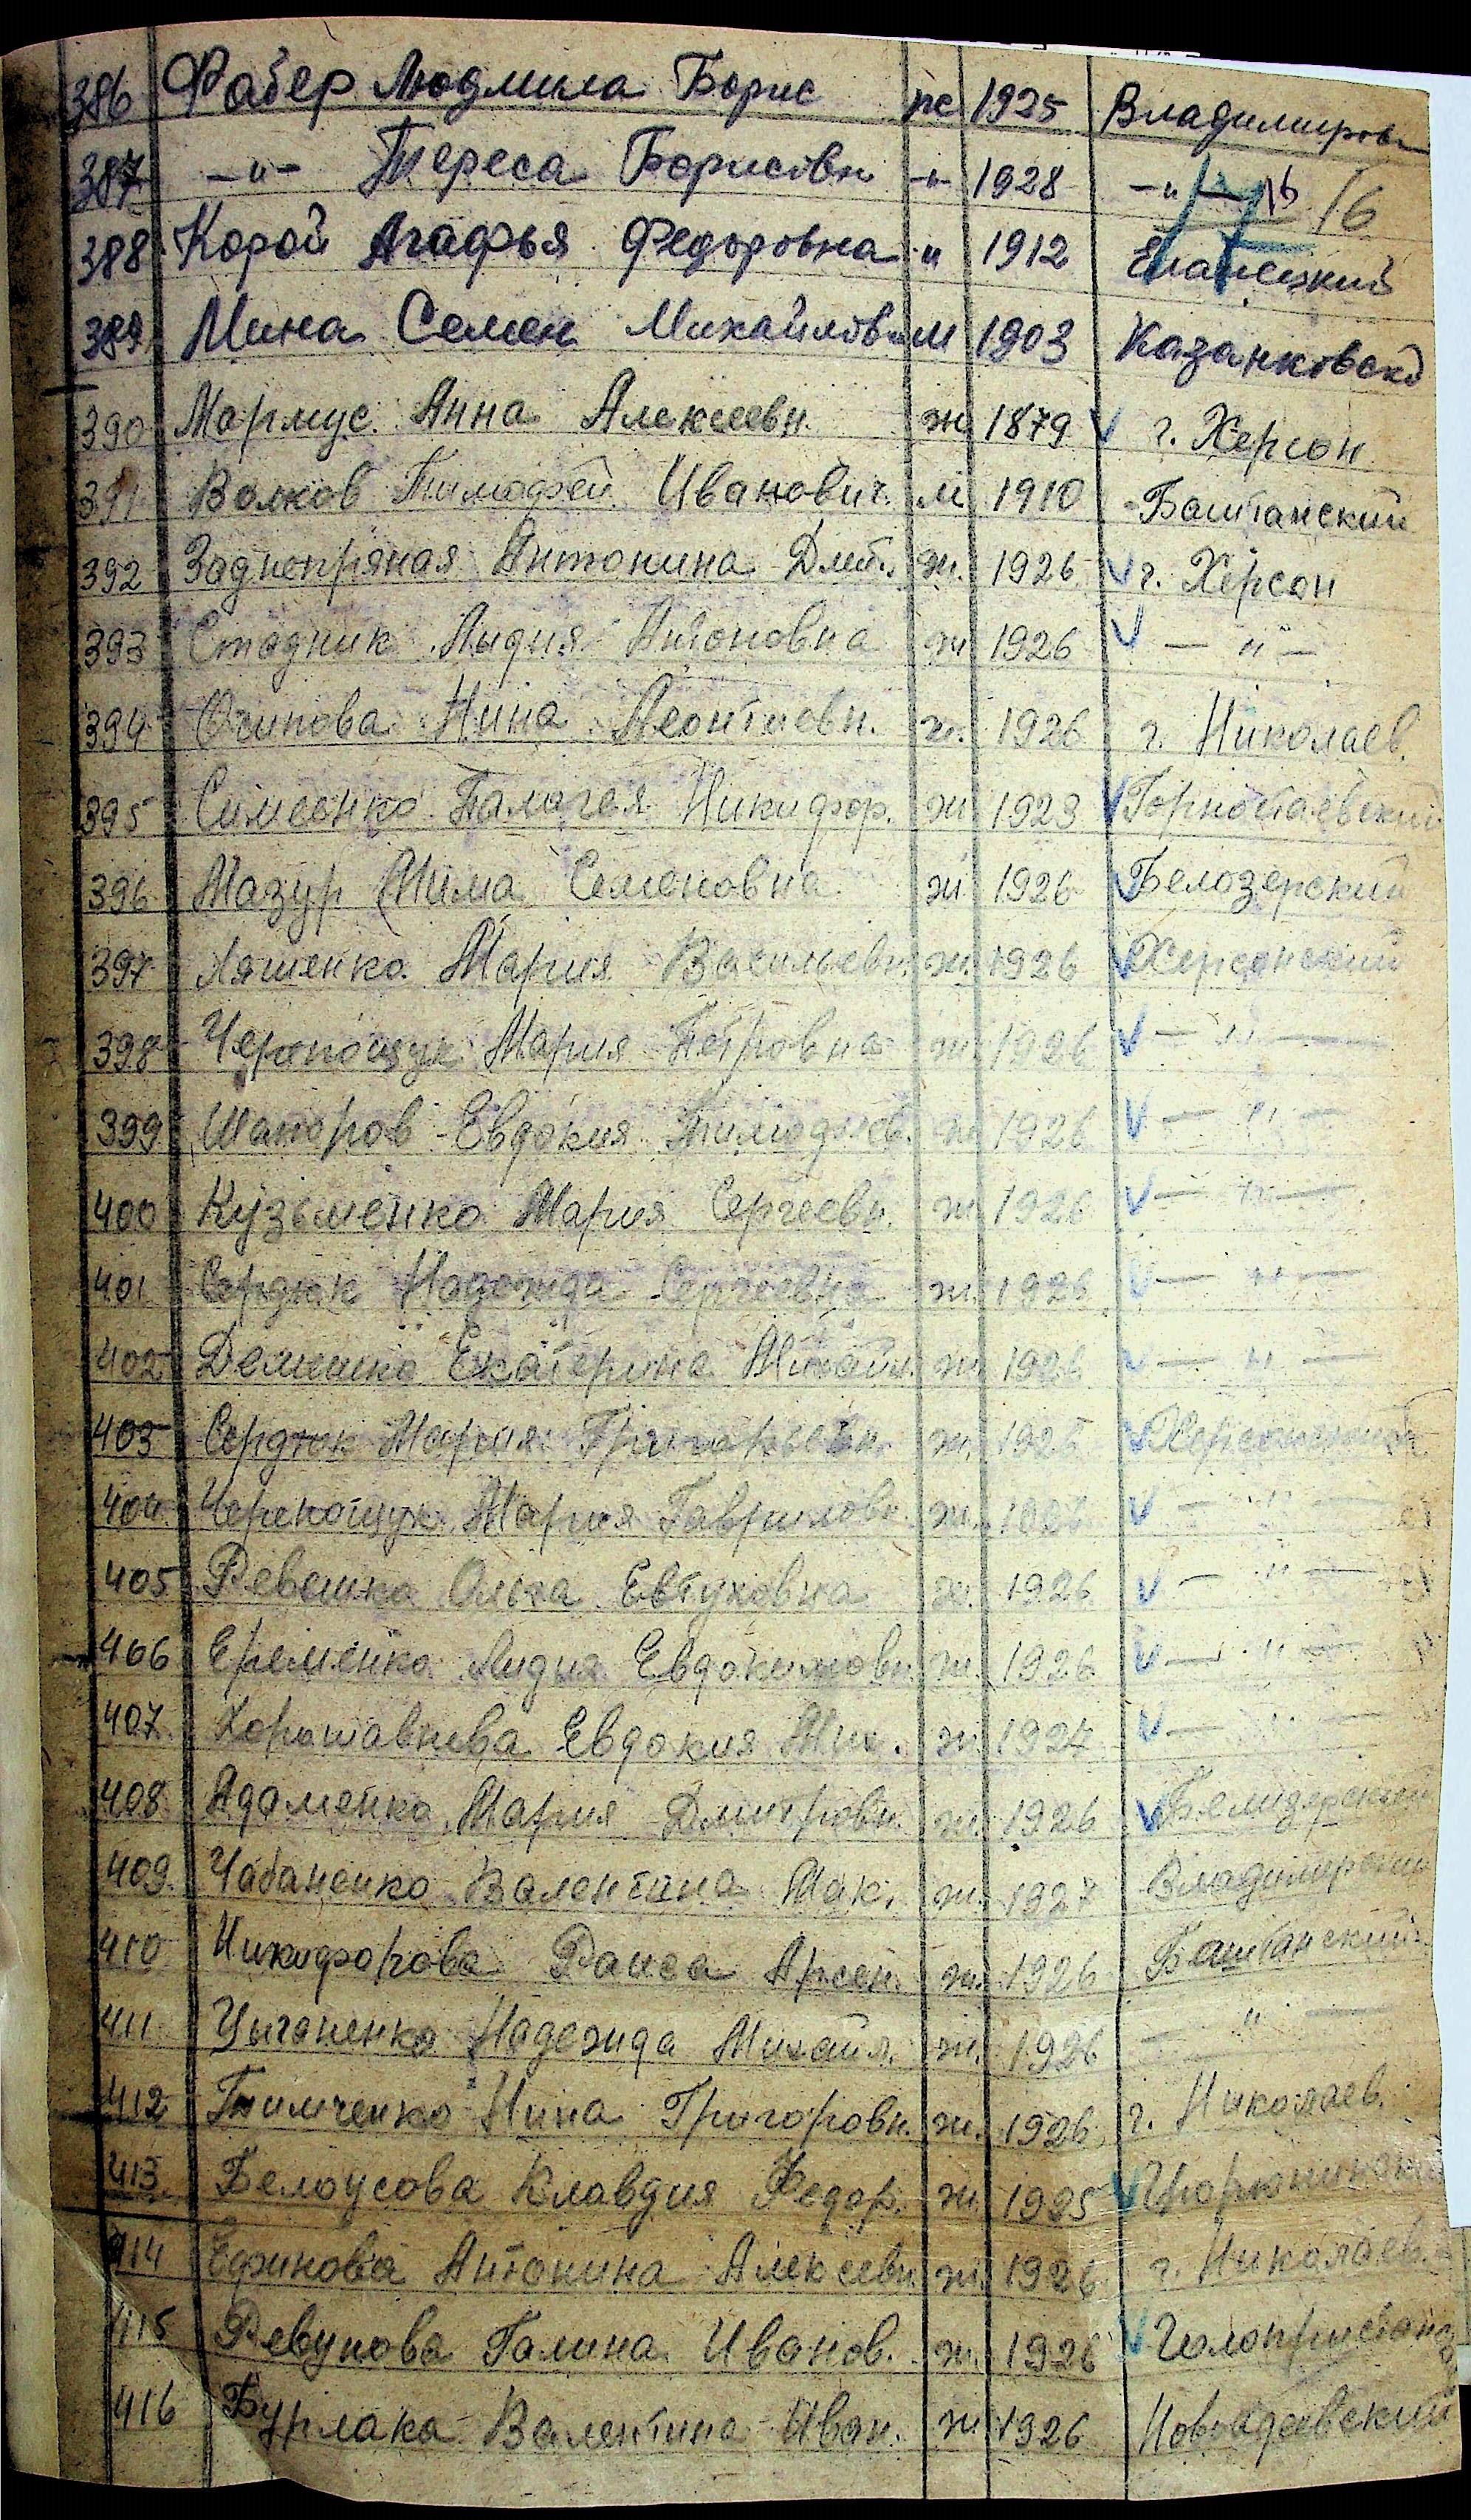 386 Фабер Людмила Борис же 1925 Владимировс
387 -"- Тереса Борисовн -"- 1928 -"- 16 16
388 Корой Агафья Федоровна " 1912 Еланецкий
389 Мина Семен Михайлов м 1903 Казанковско
390 Мармус Анна Алексеевн. ж 1879 V г. Херсон
391 Волков Тимофей Иванович. м 1910 Баштанский
392 Заднепряная Антонина Дмит. ж. 1926 V г. Херсон
393 Стадник Лидия Антоновна ж 1926 V — " —
394 Осипова Нина Леонтиевн. ж. 1926 г. Николаев.
395 Симоенко Палагея Никифор. ж 1923 V Горностаевский
396 Мазур Мима Семеновна ж 1926 V Белозерский
397 Ляшенко Мария Васильевн. ж. 1926 V Херсонский
398 Мария Петровна ж. 1926 V — " —
399 Евдокия Тимофеев. ж 1926 V — " —
400 Кузьменко Мария Сергеевн. ж. 1926 V — " —
401 Сердюк Надежда Сергеевна ж. 1926 V — " —
402 Екатерина Михайл. ж. 1926 V — " —
403 Сердюк Мария Григорьевн. ж. 192 V Херсонский
404 Мария Гавриловн. ж. V — " —
405 Ольга Евтуховна ж. 1926 V — " —
406 Еременко Лидия Евдокимовн. ж. 1926 V — " —
407. Евдокия Мих. ж. 1924 V — " —
408 Адаменко Мария Дмитровн. ж. 1926 V Белозерский
409. Чабаненко Валентина Мак. ж. 1927 Владимирский
410 Никифорова Раиса Арсен. ж. 1926 Баштанский
411 Цыганенко Надежда Михайл. ж. 1926 — " —
412 Тимченко Нина Григоровн. ж. 1926 г. Николаев.
413. Белоусова Клавдия Федор. ж. 1925 V
414 Антонина Алексеевн ж. 1926 г. Николаев.
415 Ревунова Галина Иванов. ж. 1926 V Голопристанс
416 Бурлака Валентина Иван. ж 1926 Новоодесский